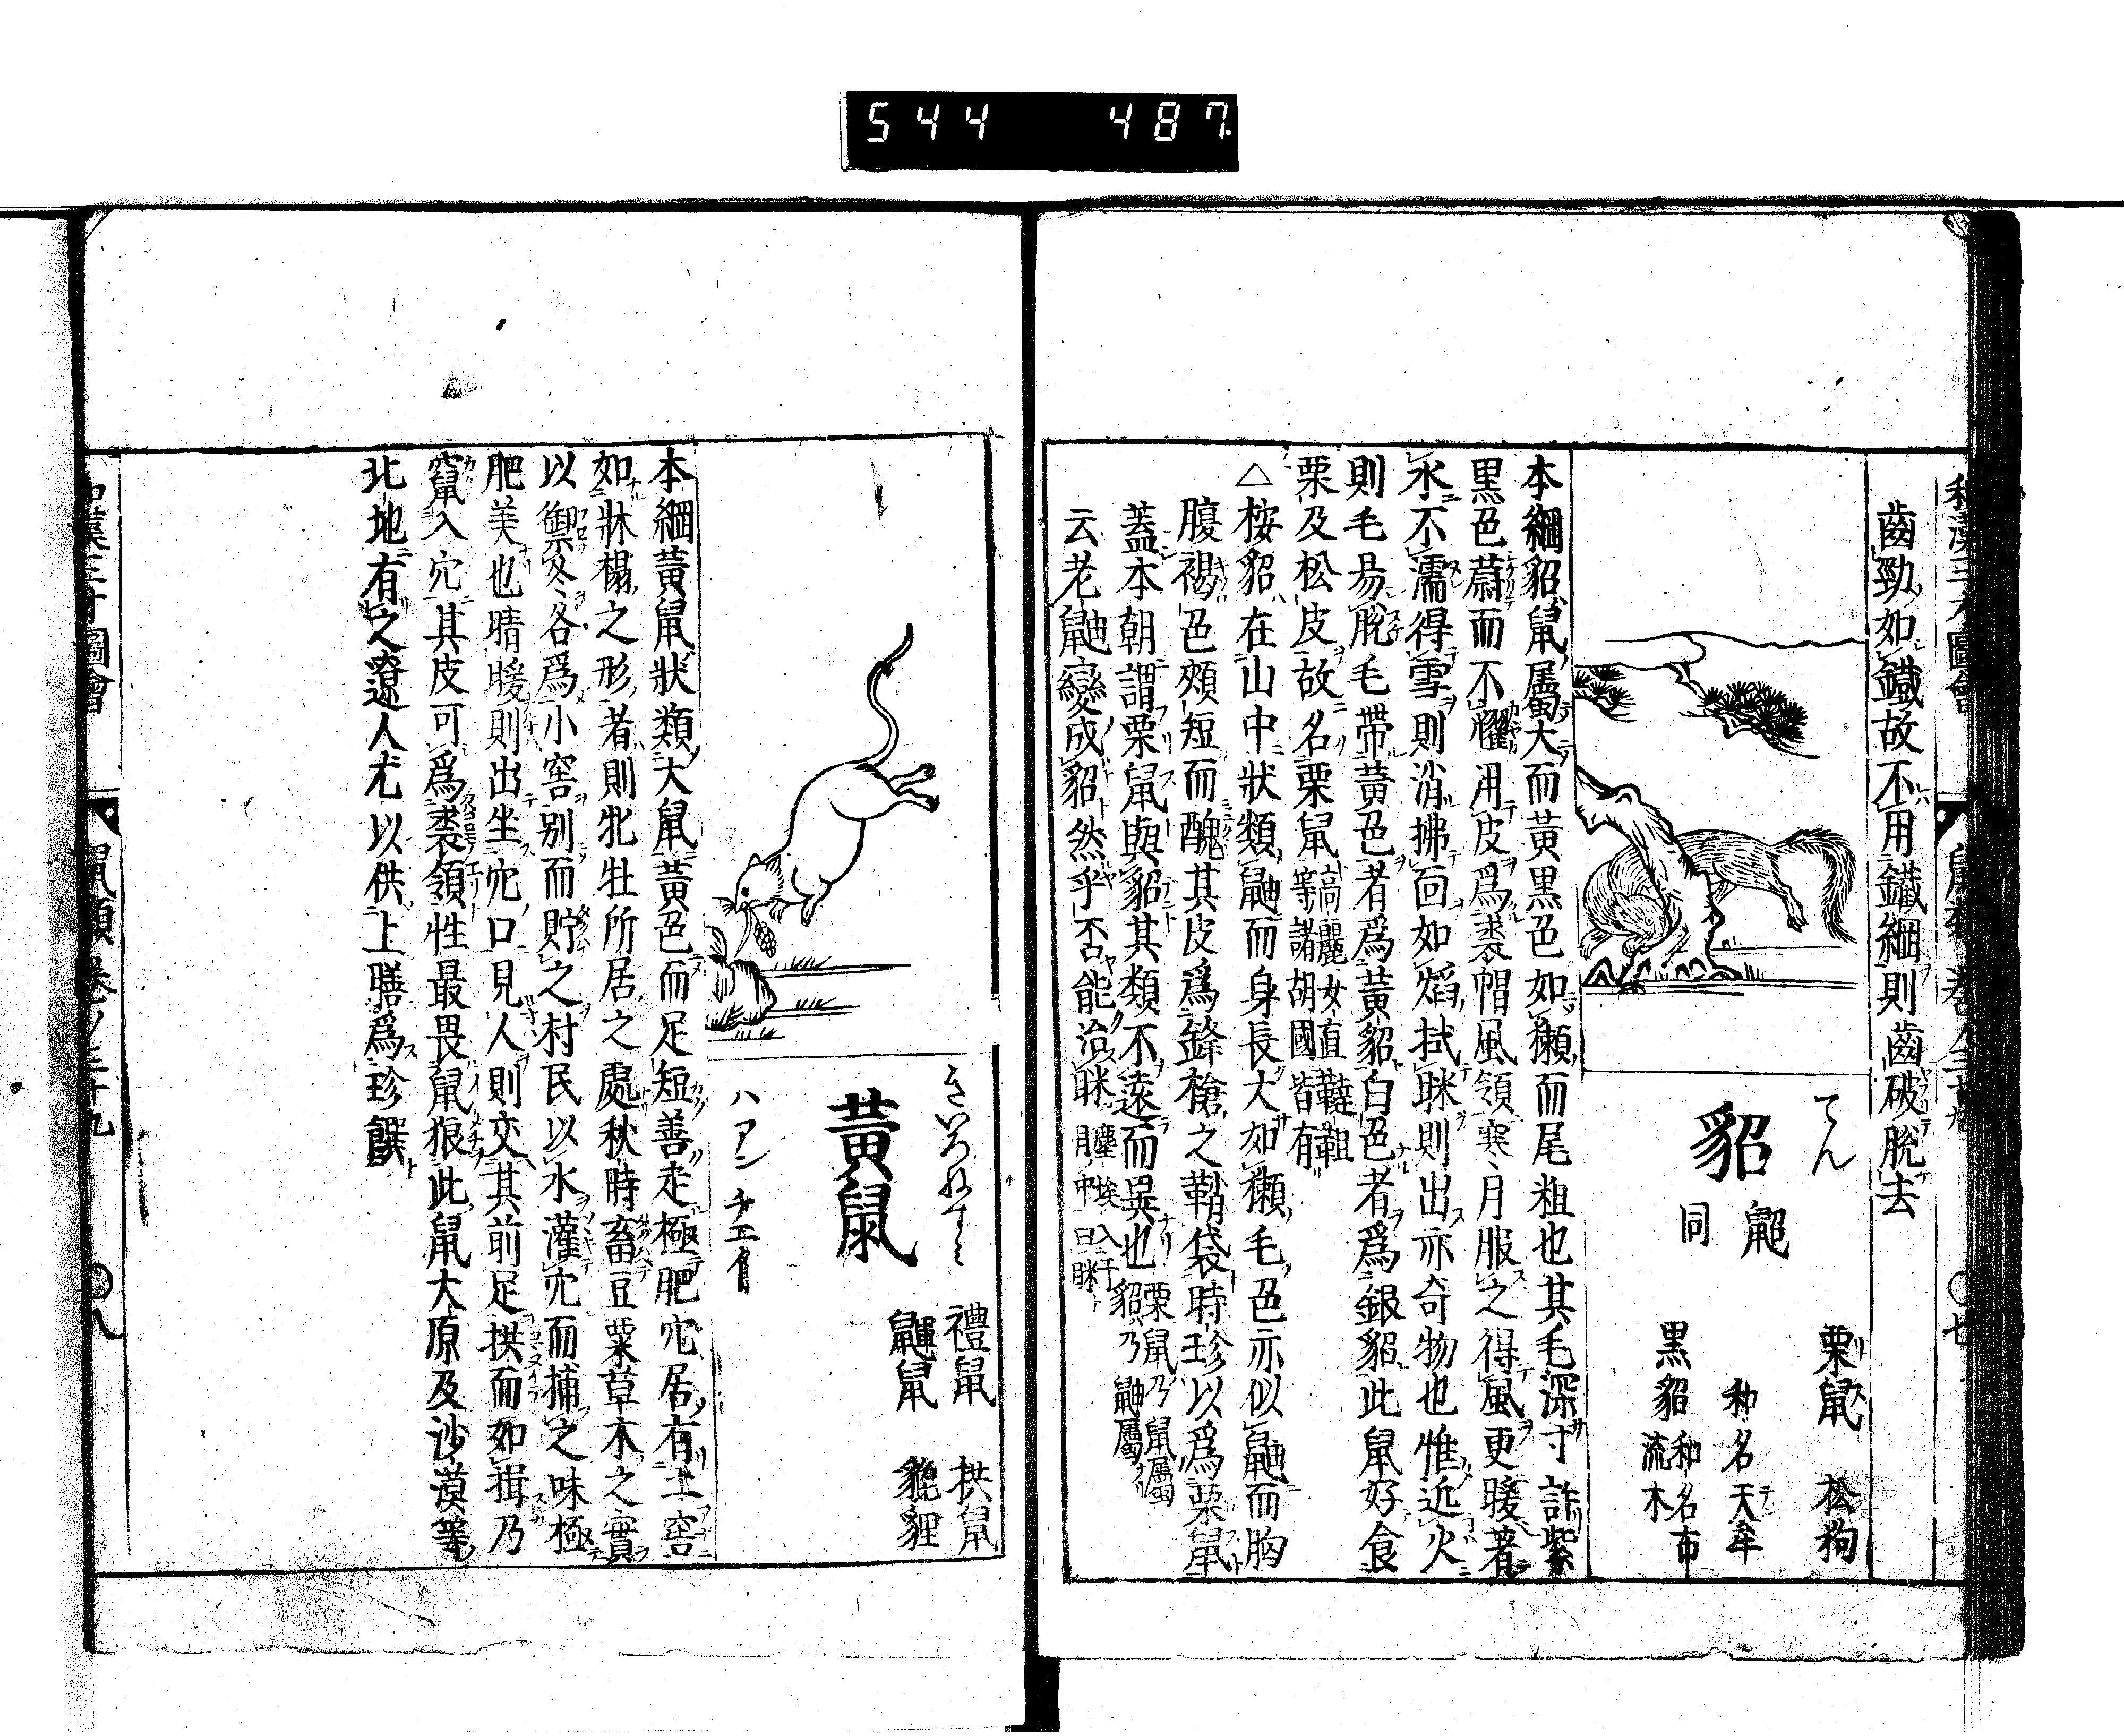 544 487
和漢三才圖會 鼠類 卷ノ三十九 ○七
齒勁如鐵故不用鐵綱則齒破脫去
てん
貂
鼦 同
栗鼠 松狗
和名天
黒貂 和名布流木
本綱貂鼠屬大而黃黒色如獺而尾粗也其毛深寸許紫
黒色蔚而不耀用皮爲裘帽風領寒月服之得風更暖著
水不濡得雪則消拂面如焰拭眯則出亦奇物也惟近火
則毛易脫毛帶黃色者爲黃貂白色者爲銀貂此鼠好食
栗及松皮故名栗鼠 高麗女直韃靼等諸胡國皆有
△桉貂在山中狀類鼬而身長大如獺毛色亦似鼬而胸
腹褐色頰短而醜其皮爲鋒槍之鞘袋時珍以爲栗鼠
蓋本朝謂栗鼠與貂其類不遠而異也 栗鼠乃鼠屬貂乃鼬屬
云老鼬變成貂然乎否能治眯 塵埃入于目中曰眯
きいろねすミ
黃鼠
ハアン チユイ
禮鼠 拱鼠
鼲鼠 貔貍
本綱黃鼠狀類大鼠黃色而足短善走極肥穴居有土窖
如牀榻之形者則牝牡所居之處秋時畜豆粟草木之實
以禦冬各爲小窖別而貯之村民以水灌穴而捕之味極
肥美也晴暖則出坐穴口見人則交其前足拱而如揖乃
竄入穴其皮可爲裘領性最畏鼠狼此鼠大原及沙漠等
北地有之遼人尤以供上膳爲珍饌
和漢三才圖會 鼠類 卷ノ三十九 ○八